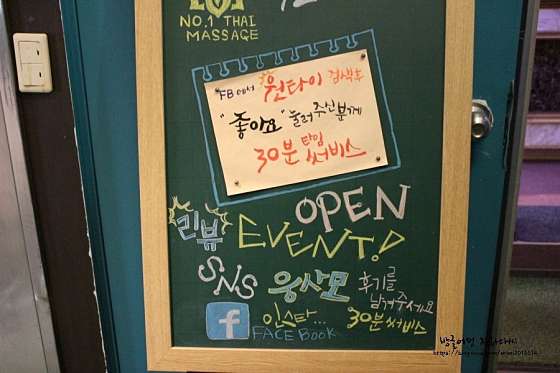 NO.1 THAI
MASSAGE
FB에서 원타이 검색후
"좋아요" 눌러주신분께
30분 타임 써비스
OPEN
리뷰 EVENT!
SNS 웅상모 후기를
남겨주세요
인스타... 30분 써비스
f FACEBOOK